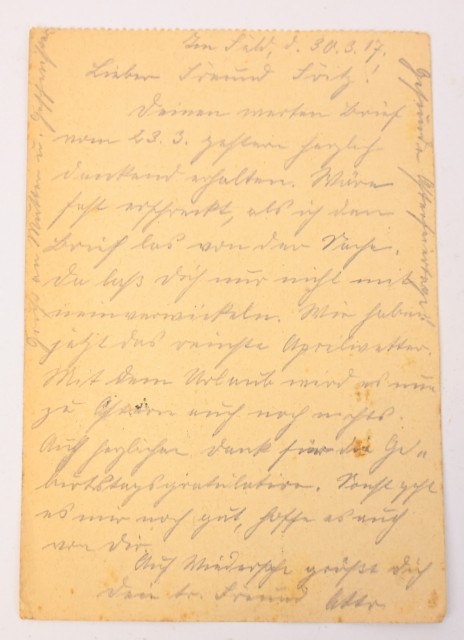 Im Feld, d. 30.3.17.
Lieber Freund Fritz!
Deinen werten Brief
vom 23.3. gestern herzlich
dankend erhalten. Wäre
fast erschreckt, als ich den
Brief las von der Sache.
Da laß Dich nur nicht mit
reinverwickeln. Wir haben
jetzt das reinste Aprilwetter.
Mit dem Urlaub wird es nun
zu Ostern auch noch nichts.
Auch herzlichen Dank für die Ge„
burtstagsgratulation. Sonst geht
es mir noch gut, hoffe es auch
von Dir.
Auf Wiedersehn grüßt Dich
Dein tr. Freund Otto
Gruß an Mutter u. Geschwister